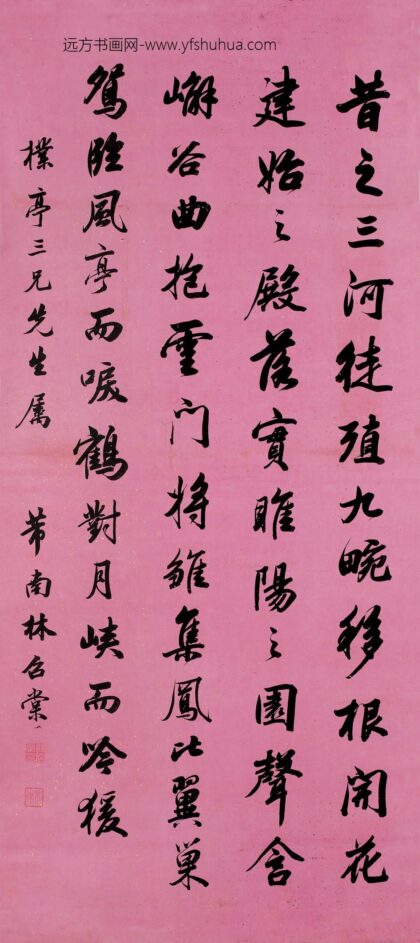 远方书画网-www.yfshuhua.com
昔之三河徙殖九畹移根開花
建始之殿落實睢陽之園聲含
嶰谷曲抱雲門将雛集鳳比翼巢
鴛臨風亭而唳鶴對月峡而吟猨
樸亭三兄先生属
芾南林召棠